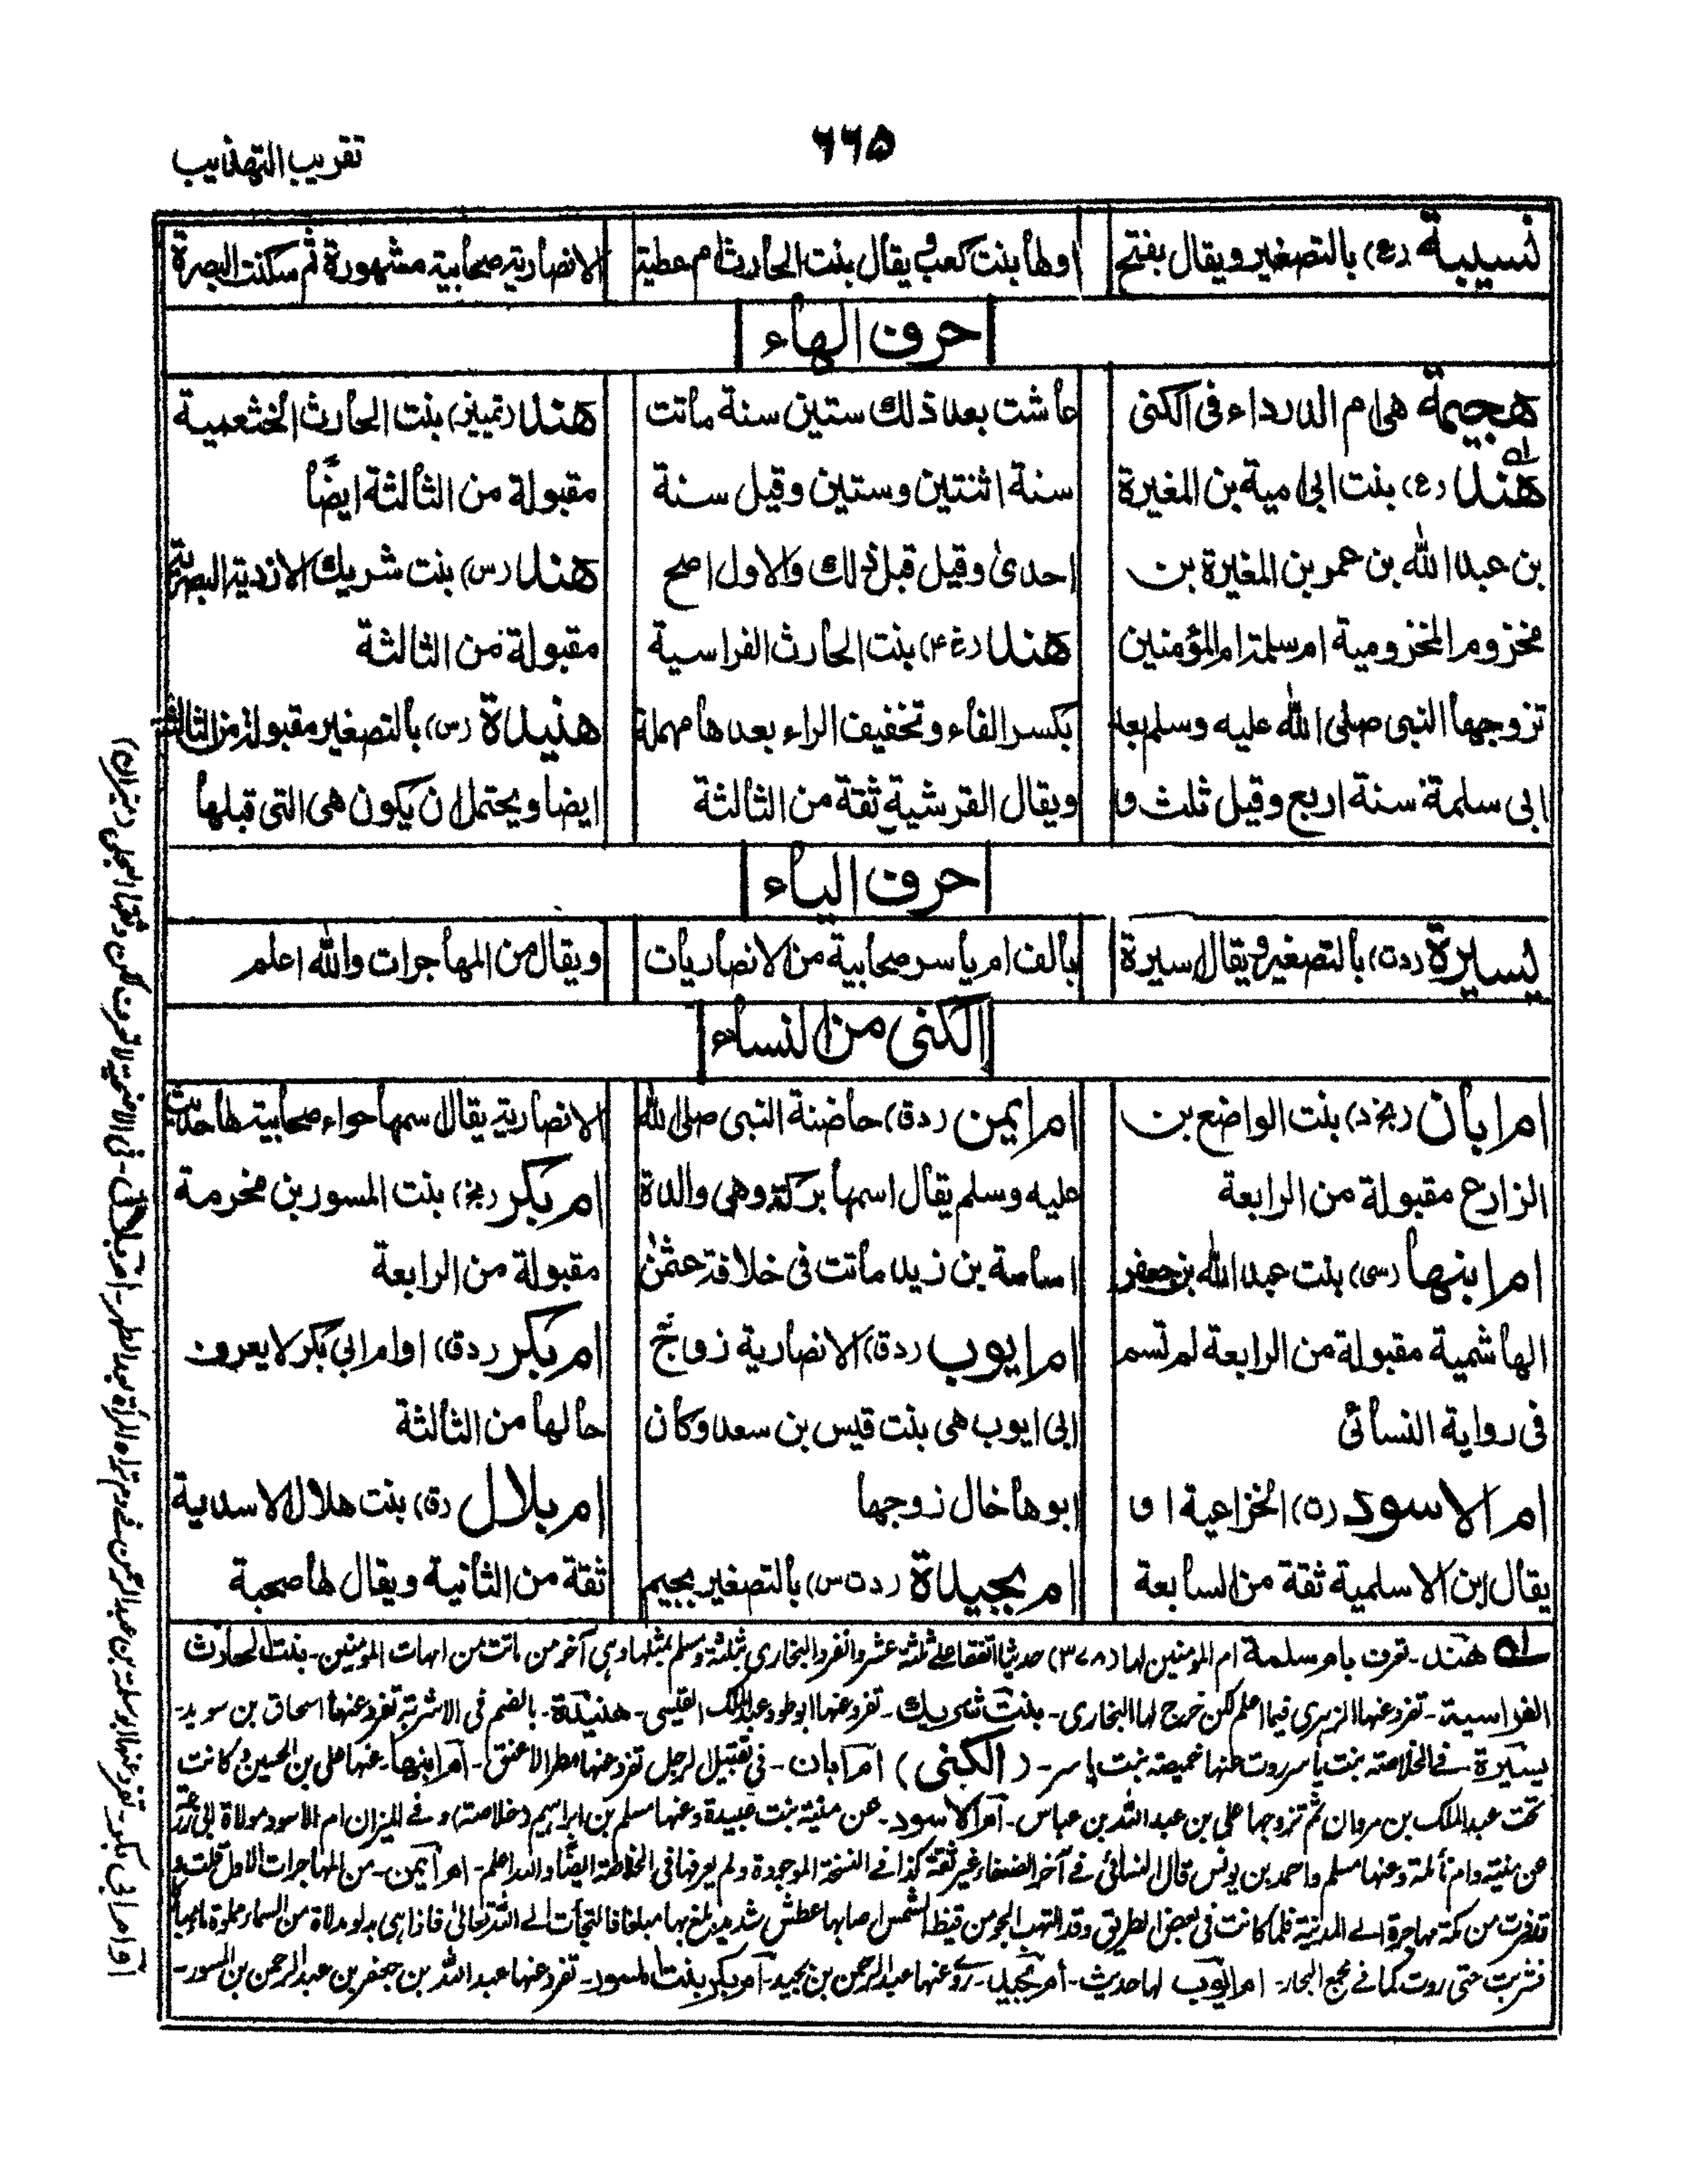 تقريب التهذيب
٦٦٥
نسيبة (ع) بالتصغير ويقال بفتح
اولها بنت كعب ويقال بنت الحارث ام عطية
الانصارية صحابية مشهورة ثم سكنت البصرة
حرف الهاء
هجيمة هى ام الدرداء فى الكنى
هند (ع) بنت ابى امية بن المغيرة
بن عبد الله بن عمر بن المغيرة بن
مخزوم المخزومية ام سلمة ام المؤمنين
تزوجها النبى صلى الله عليه وسلم بعد
ابى سلمة سنة اربع وقيل ثلث و
عاشت بعد ذلك ستين سنة ماتت
سنة اثنتين وستين وقيل سنة
احدى وقيل قبل ذلك والاول اصح
هند (خ ۴) بنت الحارث الفراسية
بكسر الفاء وتخفيف الراء بعدها مهملة
ويقال القرشية ثقة من الثالثة
هند (تمييز) بنت الحارث الخثعمية
مقبولة من الثالثة ايضًا
هند (س) بنت شريك الازدية البصرية
مقبولة من الثالثة
هنيدة (س) بالتصغير مقبولة من الثالثة
ايضا ويحتمل ان يكون هى التى قبلها
حرف الياء
يسيرة (دت) بالتصغير ويقال اسيرة
بالف ام ياسر صحابية من الانصاريات
ويقال من المهاجرات والله اعلم
الكنى من النساء
ام ابان (بخ د) بنت الوازع بن
الزارع مقبولة من الرابعة
ام ابنها (سى) بنت عبد الله بن جعفر
الهاشمية مقبولة من الرابعة لم تسم
فى رواية النسائى
ام الاسود (ت) الخزاعية او
يقال الاسلمية ثقة من السابعة
ام ايمن (دق) حاضنة النبى صلى الله
عليه وسلم يقال اسمها بركة وهى والدة
اسامة بن زيد ماتت فى خلافة عثمٰن
ام ايوب (دق) الانصارية زوج
ابى ايوب هى بنت قيس بن سعد وكان
ابوها خال زوجها
ام بجيدة (دت س) بالتصغير بجيم
الانصارية يقال اسمها حواء صحابية لها حديث
ام بكر (بخ) بنت المسور بن مخرمة
مقبولة من الرابعة
ام بكر (دق) او ام ابى بكر لا يعرف
حالها من الثالثة
ام بلال (ق) بنت هلال الاسدية
ثقة من الثانية ويقال لها صحبة
هند - تعرف بام سلمة ام المؤمنين لها (٣٧٨) حديثا اتفقا على ثلثة عشر وانفرد البخارى بثلثة ومسلم بمثلها وهى آخر من ماتت من امهات المؤمنين - بنت الحارث
الفراسية - تفرد عنها الزهرى فيما اعلم لكن خرج لها البخارى - بنت شريك - تفرد عنها ابو طود عبد الملك القيسى - هنيدة - بالضم فى الاشربة تفرد عنها اسحاق بن سويد -
يسيرة - فى الخلاصة بنت ياسر روت عنها حميصة بنت ياسر - (الكنى) ام ابان - فى تقبيل الرجل تفرد عنها مطر الاعنق - ام ابنها - عنها على بن الحسين وكانت
تحت عبد الملك بن مروان ثم تزوجها على بن عبد الله بن عباس - ام الاسود - عن منية بنت عبيدة وعنها مسلم بن ابراهيم (خلاصة) و فى الميزان ام الاسود مولاة ابى برزة
عن منية وام نائلة وعنها مسلم واحمد بن يونس قال النسائى فى آخر الضعفاء غير ثقة كذا فى النسخة الموجودة ولم يعرفها فى الخلاصة ايضًا والله اعلم - ام ايمن - من المهاجرات الاول
من مكة مهاجرة الى المدينة فلما كانت فى بعض الطريق وقد التهب الجو من قيظ الشمس اصابها عطش شديد بلغ بها مبلغا فالتجأت الى الله تعالى فاذا هى بدلو مدلاة من السماء مملوة ماء
فشربت حتى رويت كما فى مجمع البحار - ام ايوب لها حديث - ام بجيد - روى عنها عبد الرحمن بن بجيد - ام بكر بنت المسور - تفرد عنها عبد الله بن جعفر بن عبد الرحمن بن المسور -